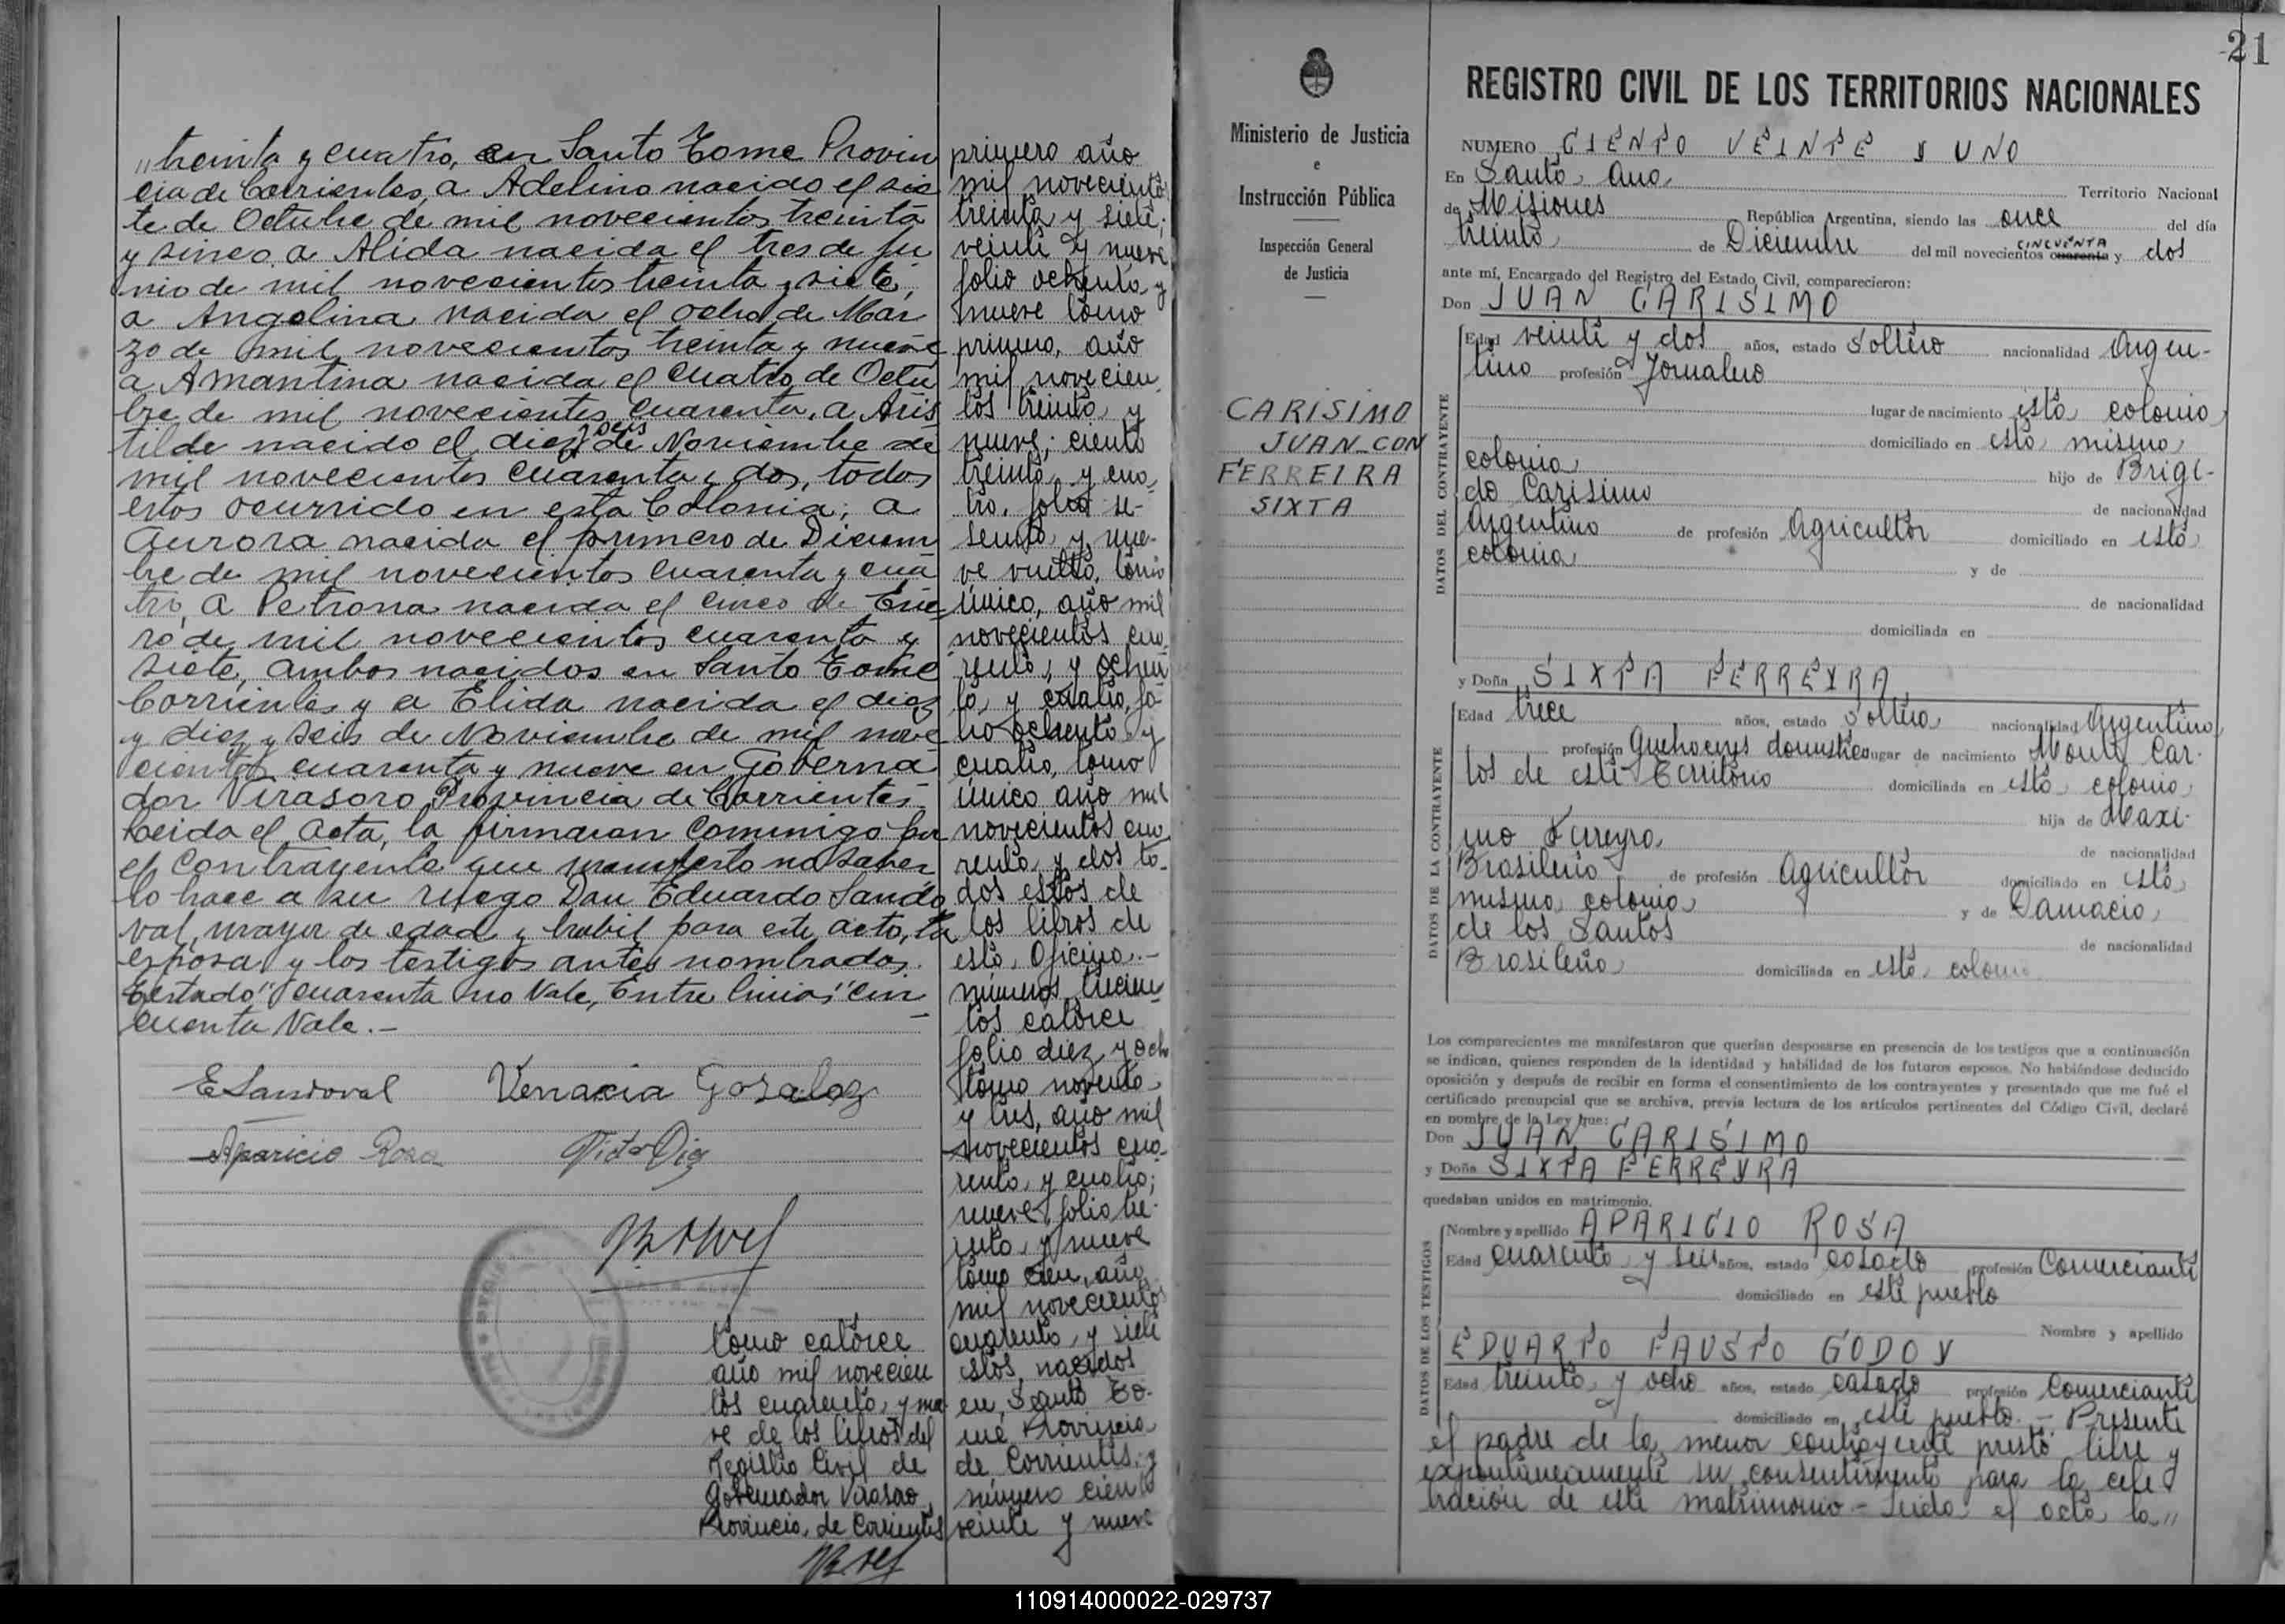 „treinta y cuatro, en Santo Tome Provin
cia de Corrientes, a Adelino nacido el sie
te de Octubre de mil novecientos treinta
y sinco, a Alida nacida el tres de Ju
nio de mil novecientos treinta y siete,
a Angelina nacida el ocho de Mar
zo de mil novecientos treinta y nueve
a Amantina nacida el cuatro de Octu
bre de mil novecientos cuarenta, a Aris
tilde nacido el diez y seis de Noviembre de
mil novecientos cuarenta y dos, todos
estos ocurrido en esta Colonia; a
Aurora nacida el primero de Diciem
bre de mil novecientos cuarenta y cua
tro, a Petrona nacida el cinco de Ene
ro de mil novecientos cuarenta y
siete, ambos nacidos en Santo Tome
Corrientes y a Elida nacida el diez
y diez y seis de Noviembre de mil nove
cientos cuarenta y nueve en Goberna
dor Virasoro Provincia de Corrientes.
Leida el acta, la firmaron conmigo por
el contrayente que manifesto no saber
lo hace a su ruego Don Eduardo Sando
val, mayor de edad y habil para este acto, la
esposa y los testigos antes nombrados.
Testado "cuarenta no Vale, Entre linias "cin
cuenta Vale.-
ESandoval Venacia Gosalez
Aparicio Rosa Victor Diez
tomo catorce
año mil novecien
tos cuarenta y nue
ve de los libros del
Registro Civil de
Gobernador Virasoro,
Provincia de Corrientes
primero año
mil novecientos
treinta y siete;
veinte y nueve
folio ochenta y
nueve tomo
primero, año
mil novecien
tos treinta y
nueve; ciento
treinta y cua
tro, folio se-
senta y nue-
ve vuelto, tomo
único, año mil
novecientos cua
renta, y ochen
ta y cuatro, fo
lio ochenta y
cuatro, tomo
único año mil
novecientos cua
renta y dos to-
dos estos de
los libros de
esta Oficina.-
números trecien
tos catorce
folio diez y ocho
tomo noventa
y tres, año mil
novecientos cua
renta y cuatro;
nueve, folio tre
inta y nueve
tomo cien, año
mil novecientos
cuarenta y siete
estos nacidos
en Santo To-
mé Provincia
de Corrientes; y
número ciento
veinte y nueve
21
Ministerio de Justicia
e
Instrucción Pública
Inspección General
de Justicia
CARISIMO
JUAN_CON
FERREIRA
SIXTA
REGISTRO CIVIL DE LOS TERRITORIOS NACIONALES
NUMERO CIENTO VEINTE Y UNO
En Santa Ana Territorio Nacional
de Misiones República Argentina, siendo las once del día
treinta de Diciembre del mil novecientos cuarenta CINCUENTA y dos
ante mí, Encargado del Registro del Estado Civil, comparecieron:
Don JUAN CARISIMO
DATOS DEL CONTRAYENTE
Edad veinte y dos años, estado soltero nacionalidad Argen-
tino profesión Jornalero
lugar de nacimiento esta colonia
domiciliado en esta misma
colonia hijo de Brigi-
do Carisimo de nacionalidad
Argentino de profesión Agricultor domiciliado en esta
colonia y de
de nacionalidad
domiciliada en
y Doña SIXTA FERREYRA
DATOS DE LA CONTRAYENTE
Edad trece años, estado soltera nacionalidad Argentina
profesión Quehaceres domesticos lugar de nacimiento Monte Car-
los de este Territorio domiciliada en esta colonia
hija de Maxi-
mo Ferreyra de nacionalidad
Brasileño de profesión Agricultor domiciliado en esta
misma colonia y de Damacia
de los Santos de nacionalidad
Brasileña domiciliada en esta colonia
Los comparecientes me manifestaron que querían desposarse en presencia de los testigos que a continuación
se indican, quienes responden de la identidad y habilidad de los futuros esposos. No habiéndose deducido
oposición y después de recibir en forma el consentimiento de los contrayentes y presentado que me fué el
certificado prenupcial que se archiva, previa lectura de los artículos pertinentes del Código Civil, declaré
en nombre de la Ley que:
Don JUAN CARISIMO
y Doña SIXTA FERREYRA
quedaban unidos en matrimonio.
DATOS DE LOS TESTIGOS
Nombre y apellido APARICIO ROSA
Edad cuarenta y seis años, estado casado profesión Comerciante
domiciliado en este pueblo
Nombre y apellido
EDUARDO FAUSTO GODOY
Edad treinta y ocho años, estado casado profesión Comerciante
domiciliado en este pueblo.- Presente
el padre de la menor contrayente prestó libre y
expontáneamente su consentimiento para la cele
bración de este matrimonio - Leida el acta la„
110914000022-029737